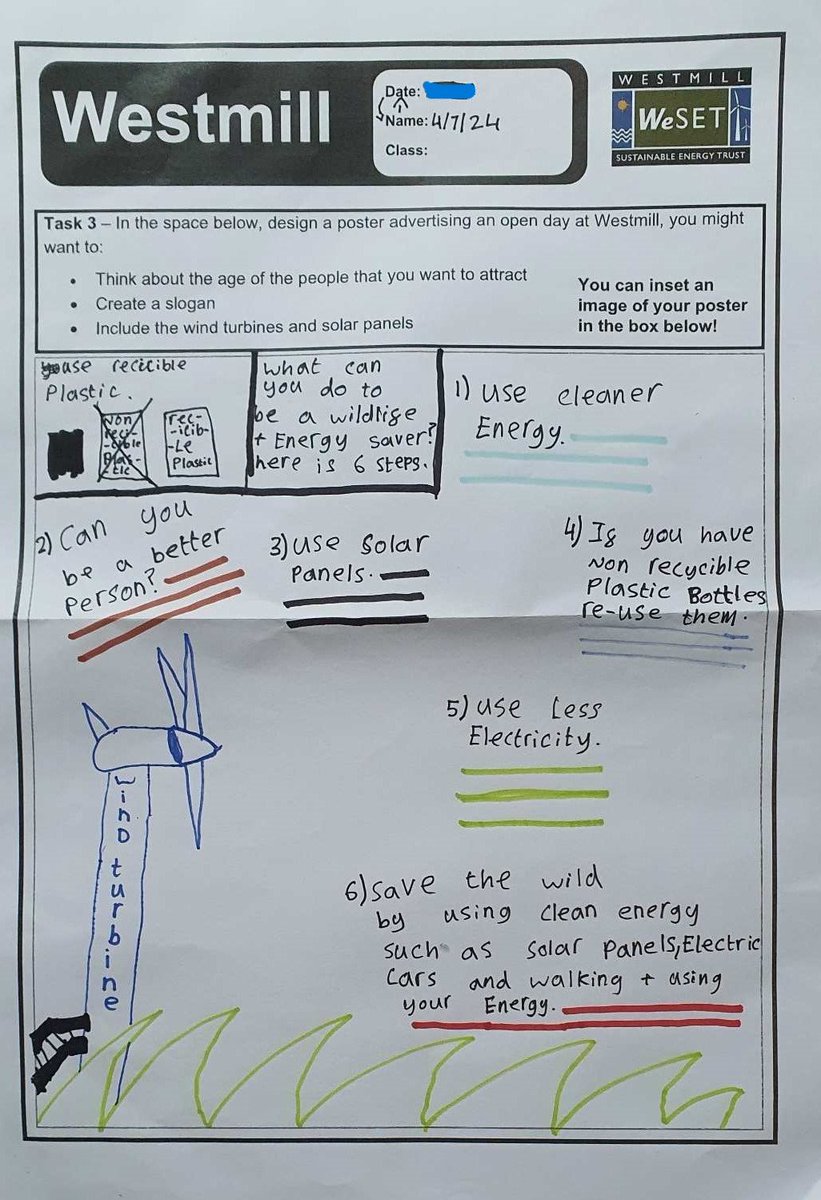 Westmill
Date:
Name: 4/7/24
Class:
WESTMILL
WeSET
SUSTAINABLE ENERGY TRUST
Task 3 – In the space below, design a poster advertising an open day at Westmill, you might
want to:
• Think about the age of the people that you want to attract
• Create a slogan
• Include the wind turbines and solar panels
You can inset an
image of your poster
in the box below!
use recicible
Plastic.
Non
reci-
-cible
Plas-
-tic
rec-
-icib-
-Le
Plastic
what can
you do to
be a wildlige
+ Energy saver?
here is 6 steps.
1) use cleaner
Energy.
2) Can you
be a better
Person?
3) use Solar
Panels.
4) Ig you have
Non recycible
Plastic Bottles
re-use them.
5) use Less
Electricity.
wind turbine
6) Save the wild
by using clean energy
such as solar Panels, Electric
Cars and walking + using
your Energy.